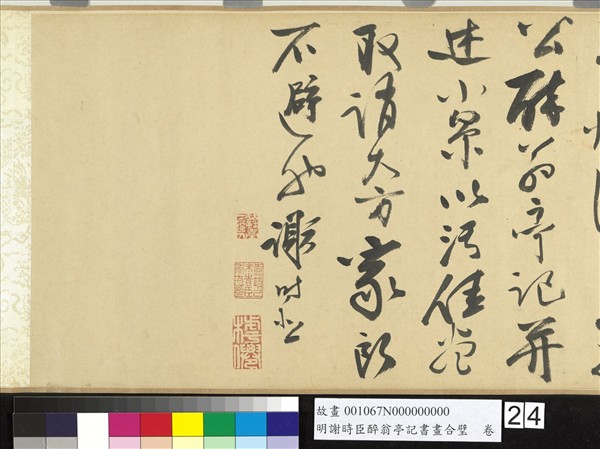 公醉翁亭記并
述小景以污佳卷
取請大方家即
不避也謝時臣
故畫 001067N000000000
明謝時臣醉翁亭記書畫合璧 卷
24